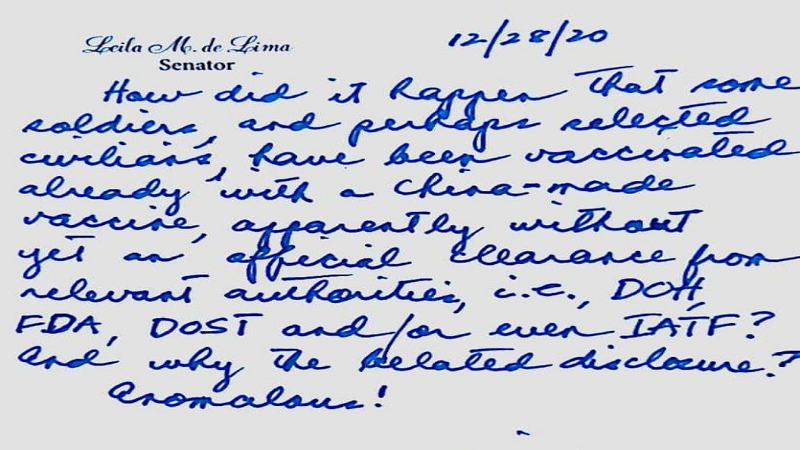 Leila M. de Lima
Senator
12/28/20
How did it happen that some
soldiers, and perhaps selected
civilians, have been vaccinated
already with a China-made
vaccine, apparently without
yet an official clearance from
relevant authorities, i.e., DOH,
FDA, DOST and/or even IATF?
And why the belated disclosure?
Anomalous!